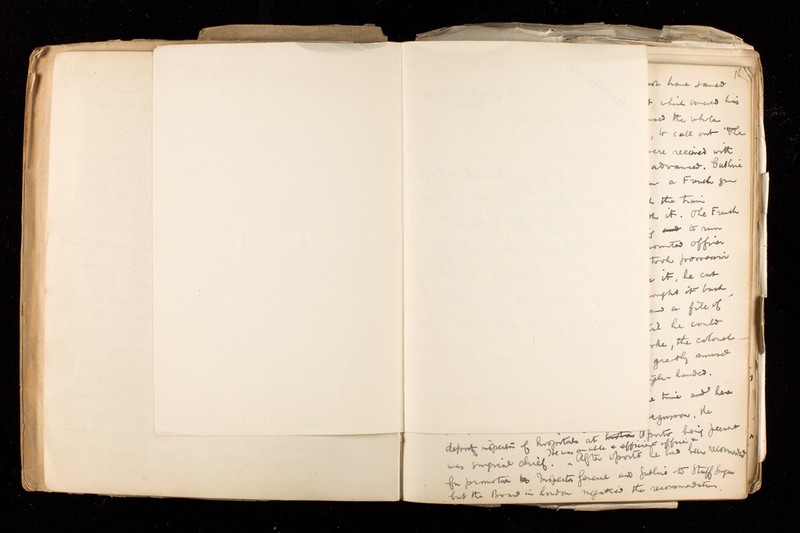 not have saved
which covered his
the whole
, to call out "The
were received with
advanced. Guthrie
a French gun
the train
it. The French
and to run
mounted officer
took possession
it, he cut
brought it back
and a file of
he could
, the colonel
greatly amused
handed.
time and here
Fergusson, the
deputy inspector of hospitals at Oporto, being present
He was an able & efficient officer &
was surgical chief. After Oporto he had been recommended
for promotion to Inspector General and Guthrie to Staff Surgeon
but the Board in London negatived the recommendation.